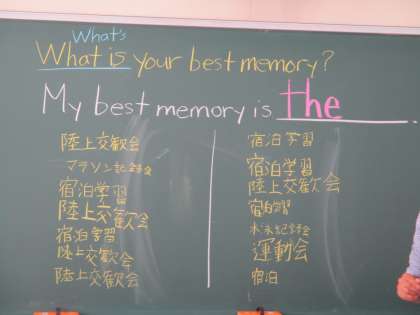 What's
What is your best memory?
My best memory is the
陸上交歓会
マラソン記録会
宿泊学習
陸上交歓会
宿泊学習
陸上交歓会
陸上交歓会
宿泊学習
宿泊学習
陸上交歓会
宿泊学習
水泳記録会
運動会
宿泊